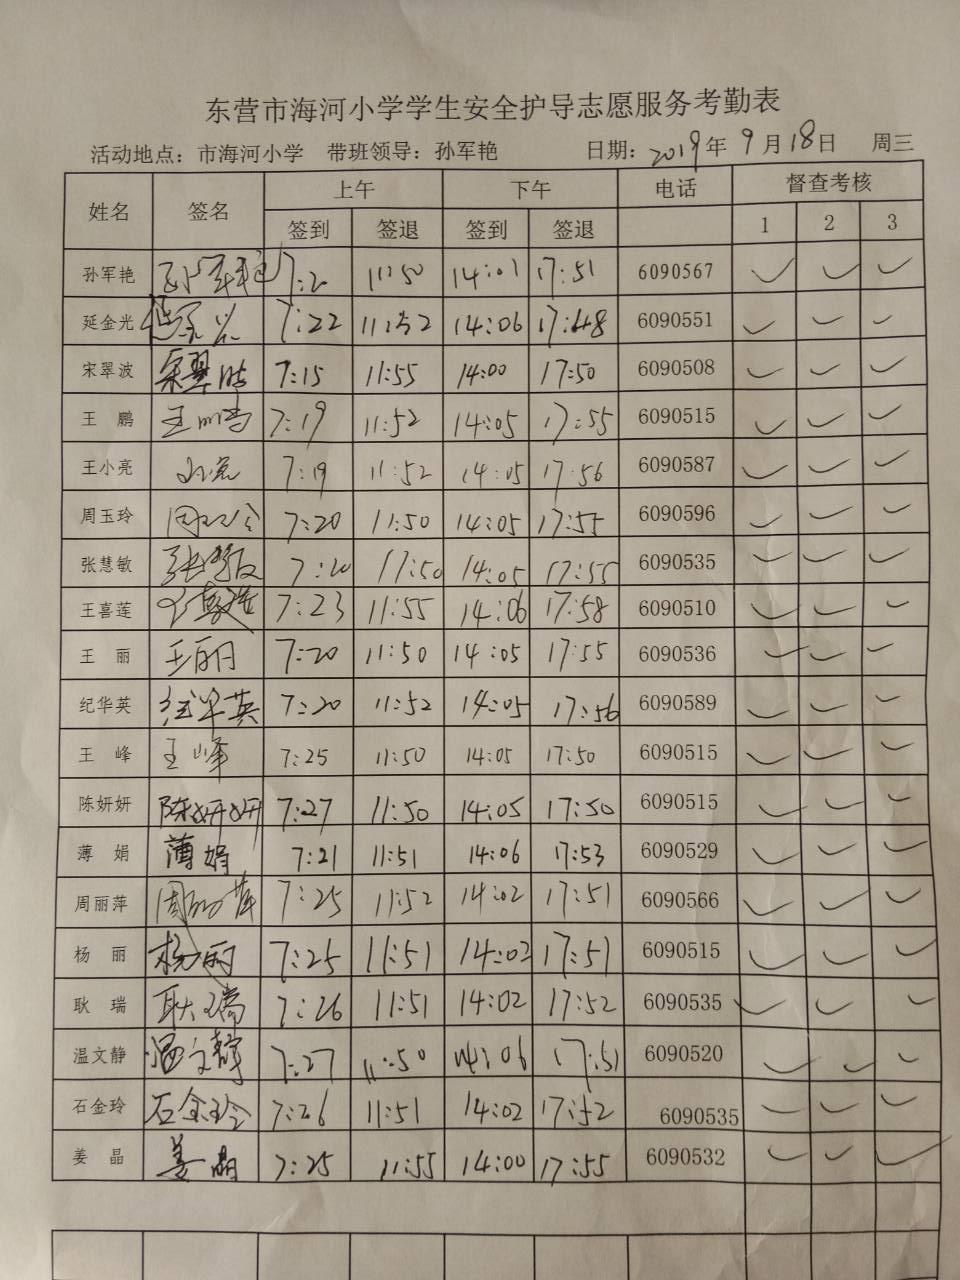 东营市海河小学学生安全护导志愿服务考勤表
活动地点：市海河小学 带班领导：孙军艳 日期：2019年9月18日 周三
姓名 签名 上午 下午 电话 督查考核
签到 签退 签到 签退 1 2 3
孙军艳 孙军艳 7:20 11:50 14:01 17:51 6090567 ✓ ✓ ✓
延金光 延金光 7:22 11:52 14:06 17:48 6090551 ✓ ✓ ✓
宋翠波 宋翠波 7:15 11:55 14:00 17:50 6090508 ✓ ✓ ✓
王鹏 王鹏 7:19 11:52 14:05 17:55 6090515 ✓ ✓ ✓
王小亮 小亮 7:19 11:52 14:05 17:56 6090587 ✓ ✓ ✓
周玉玲 周玉玲 7:20 11:50 14:05 17:55 6090596 ✓ ✓ ✓
张慧敏 张慧敏 7:20 17:50 14:05 17:55 6090535 ✓ ✓ ✓
王喜莲 王喜莲 7:23 11:55 14:06 17:58 6090510 ✓ ✓ ✓
王丽 王丽 7:20 11:50 14:05 17:55 6090536 ✓ ✓ ✓
纪华英 纪华英 7:20 11:52 14:05 17:56 6090589 ✓ ✓ ✓
王峰 王峰 7:25 11:50 14:05 17:50 6090515 ✓ ✓ ✓
陈妍妍 陈妍妍 7:27 11:50 14:05 17:50 6090515 ✓ ✓ ✓
薄娟 薄娟 7:21 11:51 14:06 17:53 6090529 ✓ ✓ ✓
周丽萍 周丽萍 7:25 11:52 14:02 17:51 6090566 ✓ ✓ ✓
杨丽 杨丽 7:25 11:51 14:03 17:51 6090515 ✓ ✓ ✓
耿瑞 耿瑞 7:26 11:51 14:02 17:52 6090535 ✓ ✓ ✓
温文静 温文静 7:27 11:50 14:06 17:51 6090520 ✓ ✓ ✓
石金玲 石金玲 7:26 11:51 14:02 17:52 6090535 ✓ ✓ ✓
姜晶 姜晶 7:25 11:55 14:00 17:55 6090532 ✓ ✓ ✓